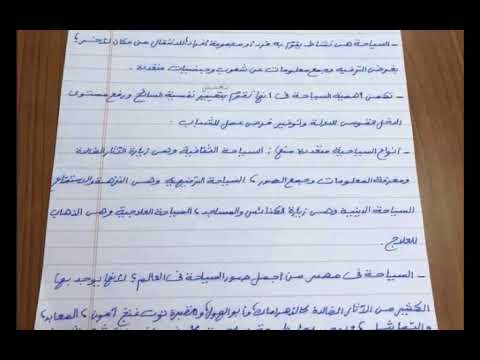 - السياحة هى نشاط يقوم به فرد او مجموعة افراد للانتقال من مكان لآخر ؛
بغرض الترفيه وجمع معلومات عن شعوب وجنسيات متعددة .
- تكمن أهمية السياحة فى انها تقوم بتحسين نفسية السائح ورفع مستوى
الدخل القومى للدولة وتوفير فرص عمل للشباب .
- انواع السياحية متعددة منها : السياحة الثقافية وهى زيارة الآثار الخالدة
ومعرفة المعلومات وجمع الصور ، السياحة الترفيهية وهى النزهة والاستمتاع
السياحة الدينية وهى زيارة الكنائس والمساجد ، السياحة العلاجية وهى الذهاب
للعلاج .
- السياحة فى مصر من اجمل صور السياحة فى العالم ؛ لانها يوجد بها
الكثير من الآثار الخالدة كالاهرامات وأبوالهول ومقبرة توت عنخ آمون ، المعابد ،
والتماثيل